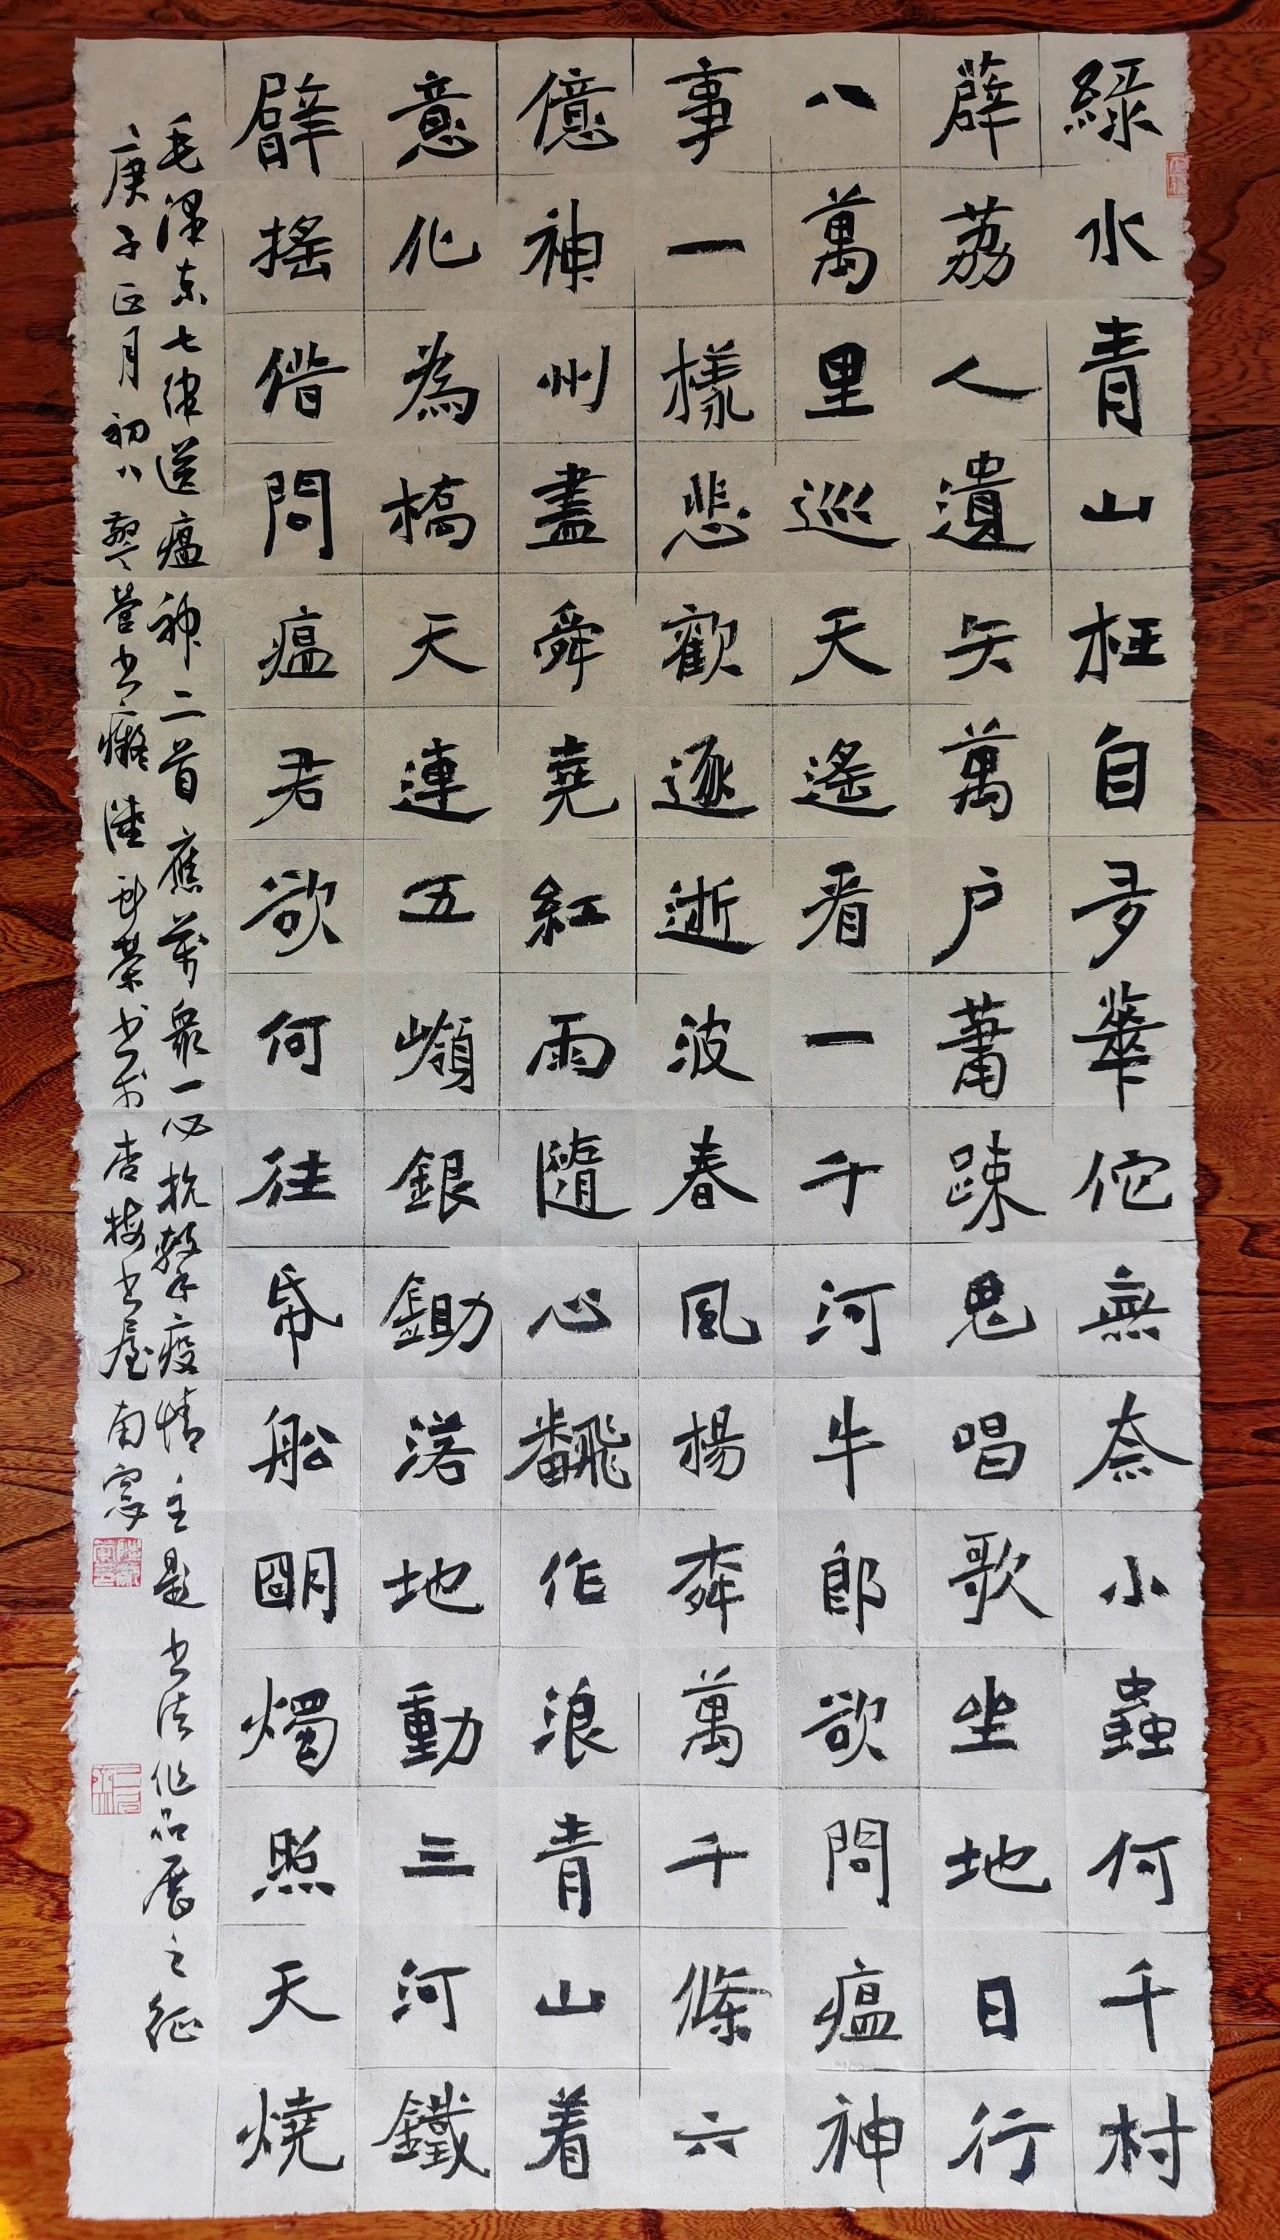 綠水青山枉自多華佗無奈小蟲何千村
薜荔人遺矢萬户蕭踈鬼唱歌坐地日行
八萬里巡天遙看一千河牛郎欲問瘟神
事一樣悲歡逐逝波春風楊柳萬千條六
億神州盡舜堯紅雨隨心翻作浪青山着
意化為橋天連五嶺銀鋤落地動三河鐵
臂搖借問瘟君欲何往帋船朙燭照天燒
毛澤东七律送瘟神二首應萬衆一心抗擊疫情主題书法作品展之征
庚子正月初八书癡陸榮书於杏梅书屋南窗